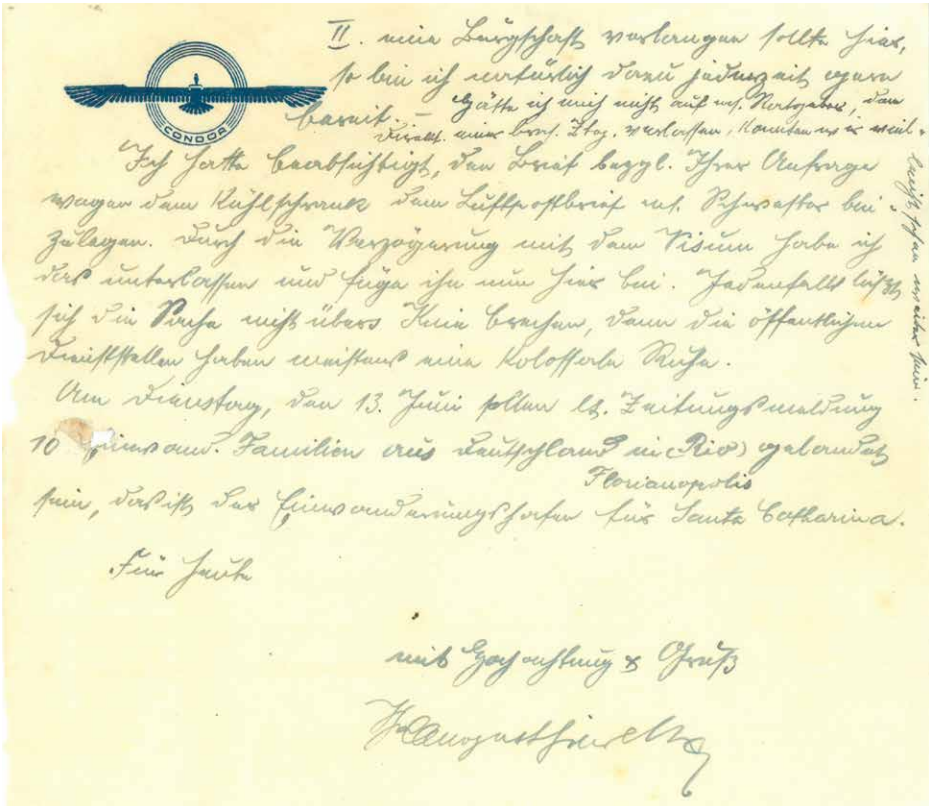 CONDOR
II. eine Bürgschaft verlangen sollte hier,
so bin ich natürlich dazu jederzeit gern
bereit. – Hätte ich mich nicht auf ms. Ratgeber, dem
Direkt. einer bras. Ztg. verlassen, könnten wir viel-
leicht schon weiter sein.
Ich hatte beabsichtigt, den Brief bezgl. Ihrer Anfrage
wegen dem Kühlschrank dem Luftpostbrief ms. Schwester bei-
zulegen. Durch die Verzögerung mit dem Visum habe ich
das unterlassen und füge ihn nun hier bei. Jedenfalls läßt
sich die Sache nicht übers Knie brechen, denn die öffentlichen
Dienststellen haben meistens eine kolossale Ruhe.
Am Dienstag, den 13. Juni sollen lt. Zeitungsmeldung
10 Einwand. Familien aus Deutschland in (Rio) gelandet
Florianopolis
sein, das ist der Einwanderungshafen für Santa Catharina.
Für heute
mit Hochachtung & Gruß